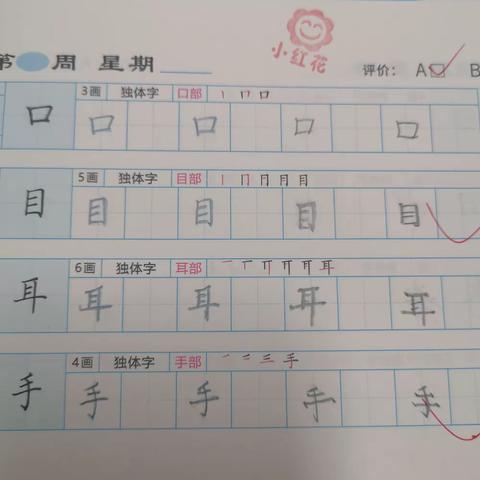 小红花
第 周 星期 评价: A B
3画 独体字 口部 丨 冂 口
口 口 口 口 口
5画 独体字 目部 丨 冂 月 月 目
目 目 目 目 目
6画 独体字 耳部 一 丅 丌 耳
耳 耳 耳 耳 耳
4画 独体字 手部 一 二 三 手
手 手 手 手 手